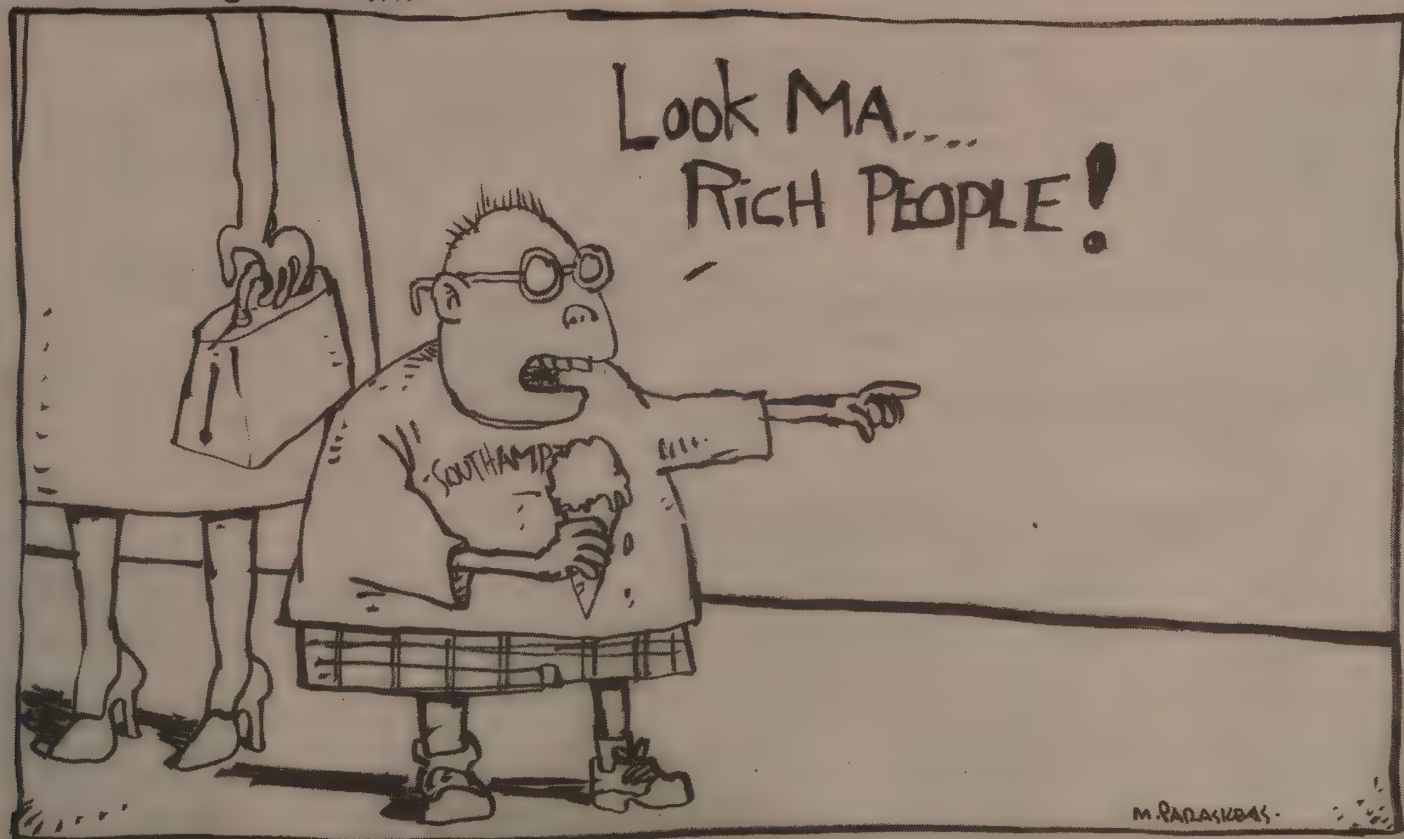 Look MA.....
RiCH PEOPLE!
SOUTHAMP
M. PARASKEVAS.